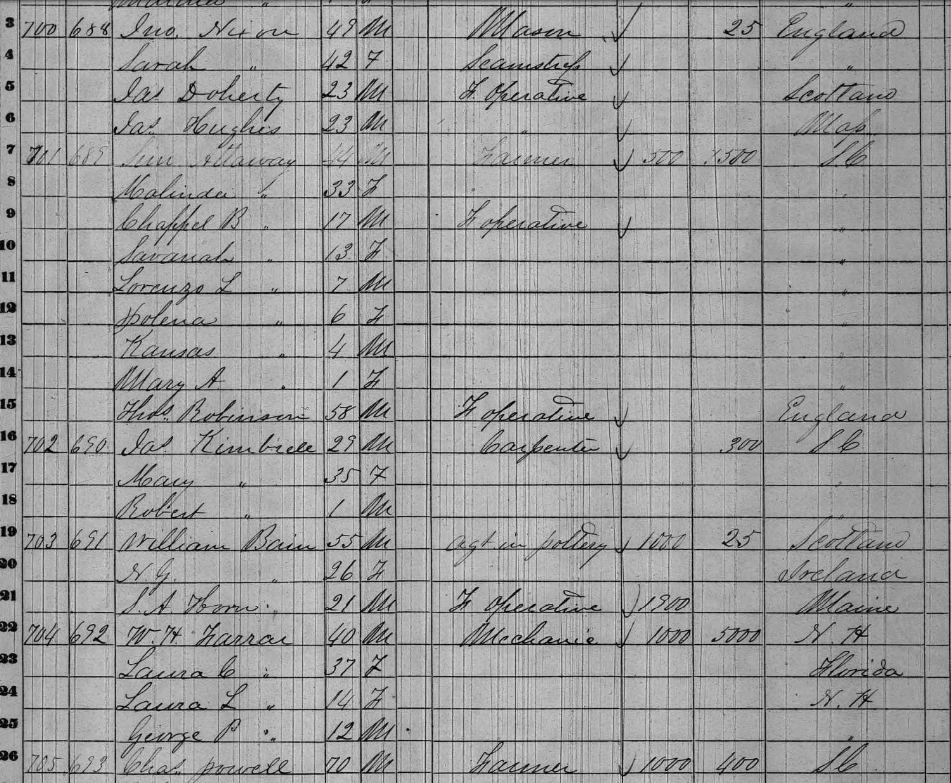 3 700 688 Jno. Nixon 49 M Mason 25 England
4 Sarah " 42 F Seamstress "
5 Jas Doherty 23 M F. operative Scotland
6 Jas Hughes 23 M " Mass
7 701 689 Attaway 44 M Farmer 500 1500 SC
8 Malinda " 33 F "
9 Chappel B " 17 M F operative "
10 Savanah " 13 F "
11 Lorenzo L " 7 M "
12 " 6 F "
13 Kansas " 4 M "
14 Mary A " 1 F "
15 Thos Robinson 58 M F operative England
16 702 690 Jas Kimbrell 29 M Carpenter 300 SC
17 Mary " 35 F "
18 Robert " 1 M "
19 703 691 William Bain 55 M agt in pottery 1000 25 Scotland
20 N. G. " 26 F Ireland
21 S. A Horn 21 M F operative 1900 Maine
22 704 692 W. H Farrar 40 M Mechanic 1000 5000 N. H
23 Laura C " 37 F Florida
24 Laura L " 14 F N. H
25 George P " 12 M "
26 705 693 Chas powell 70 M Farmer 1000 400 SC